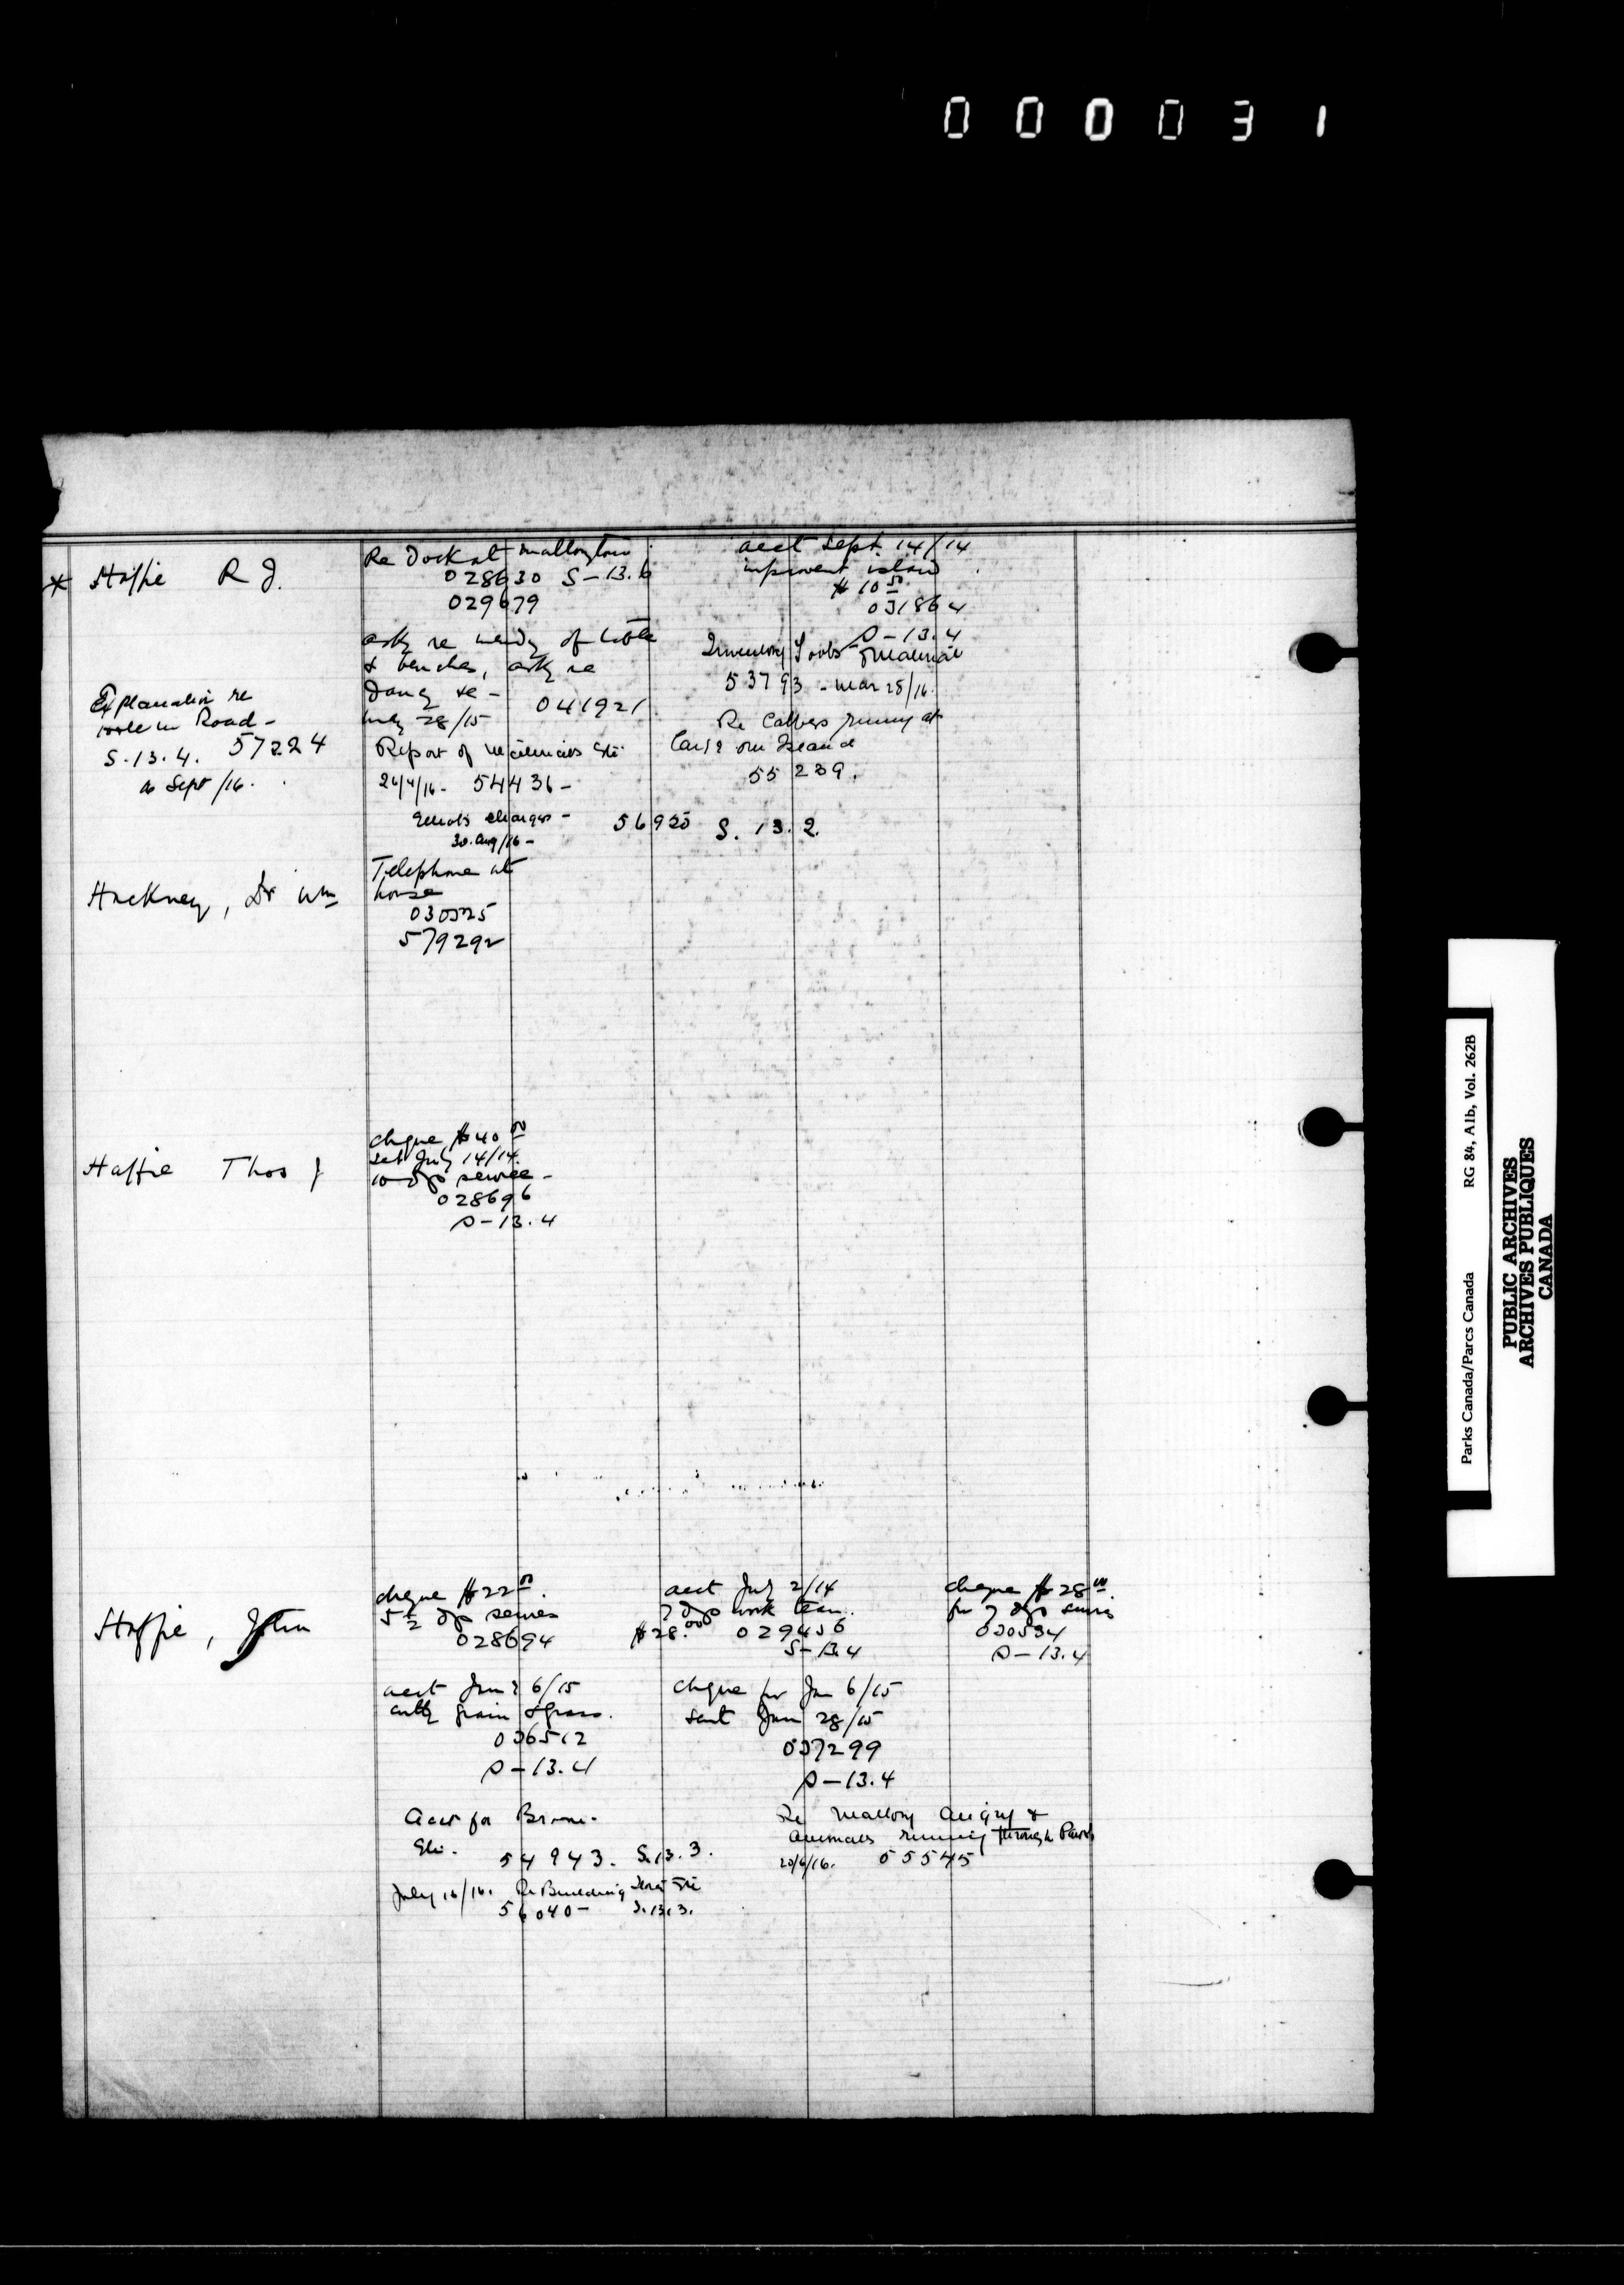 000031
* Haffie R J.
Re Dock at Mallorytown
028630 S-13.6
029679
acct Sept. 14/14
improvent island
$10.50
031864
S-13.4
asky re mendg of table
& benches, asky re
Dang re -
May 28/15 041921
Inventory Tools & Material
53793 - Mar 28/16.
Explanation re
work on Road -
S.13.4. 57224
Sept/16.
Report of
26/4/16 - 54436 -
Re Calves runng at
large on Island
55239.
charges - 56925 S. 13. 2.
30. Aug/16 -
Hackney, Dr Wm
Telephone at
house
030525
579292
Haffie Thos J
cheque $40.00
July 14/14.
10 dys service -
028696
S-13.4
Haffie, John
cheque $22.00
5½ dys service
028694
acct July 2/14
7 dys work team.
$28.00 029456
S-13.4
cheque $28.00
for 7 dys servis
030534
S-13.4
acct Jany 6/15
cuttg grain & grass.
036512
S-13.4
cheque for Jan 6/15
sent Jan 28/15
037299
S-13.4
acct for
Etc. 54943. S.13.3.
Re Mallory &
animals running through Park
20/6/16. 55545
July 16/16. Re Building
56040 - S.13.3.
Parks Canada/Parcs Canada RG 84, A1b, Vol. 262B
PUBLIC ARCHIVES
ARCHIVES PUBLIQUES
CANADA